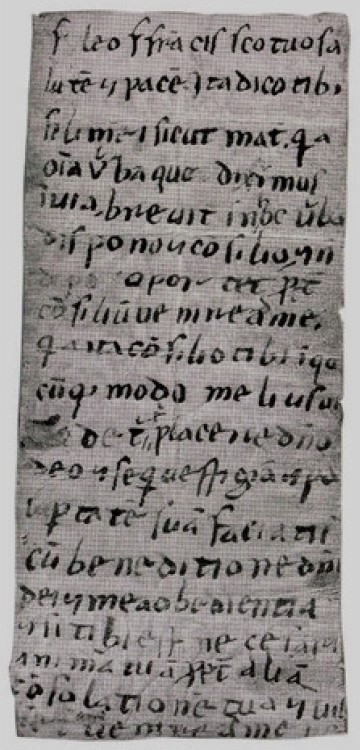 f leo f fracissco tuo sa
lutē ⁊ pacē Ita dico tibi
fili mi sicut mat̄ q̄a
oīa v̄ba que diximus
ī uia breuit̄ ī hoc v̄bo
dispono ⁊ cōsilio ⁊
oportet pt̄
cōsiliū uenire ad me
q̄a ita cōsilio tibi ī quo
cūq; modo melius
de t̄ placere dn̄o
deo ⁊ seque
uptatē suā faciatis
cū beneditione dn̄i
dei ⁊ mea obedientia
⁊ si tibi est necesariū
animā tuā ppt̄ aliā
cōsolatione tuā ⁊ uis
uenire ad me